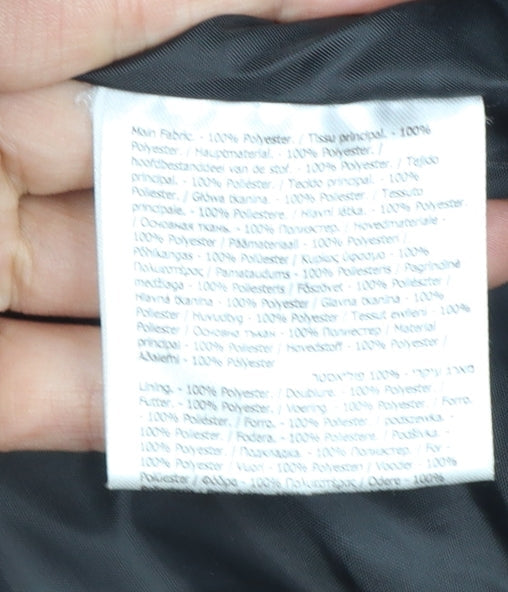 Main Fabric. - 100% Polyester. / Tissu principal. - 100%
Polyester. / Hauptmaterial. - 100% Polyester. /
hoofdbestanddeel van de stof. - 100% Polyester. / Tejido
principal. - 100% Poliéster. / Tecido principal. - 100%
Poliéster. / Główna tkanina. - 100% Poliester. / Tessuto
principale. - 100% Poliestere. / Hlavní látka. - 100% Polyester.
/ Основная ткань. - 100% Полиэстер. / Hovedmateriale -
100% Polyester / Päämateriaali - 100% Polyesteri /
Põhikangas - 100% Polüester / Κυρίως ύφασμα - 100%
Πολυεστέρας / Pamataudums - 100% Poliesteris / Pagrindinė
medžiaga - 100% Poliesteris / Főszövet - 100% Poliészter /
Hlavná tkanina - 100% Polyester / Glavna tkanina - 100%
Poliester / Huvudtyg - 100% Polyester / Tessut ewlieni - 100%
Poliester / Основна тъкан - 100% Полиестер / Material
principal - 100% Poliester / Hovedstoff - 100% Polyester /
Aðalefni - 100% Polyester
מארג עיקרי - 100% פוליאסטר
Lining. - 100% Polyester. / Doublure. - 100% Polyester. /
Futter. - 100% Polyester. / Voering. - 100% Polyester. / Forro.
- 100% Poliéster. / Forro. - 100% Poliéster. / podszewka. -
100% Poliester. / Fodera. - 100% Poliestere. / Podšívka. -
100% Polyester. / Подкладка. - 100% Полиэстер. / Fór -
100% Polyester / Vuori - 100% Polyesteri / Vooder - 100%
Polüester / Φόδρα - 100% Πολυεστέρας / Odere - 100%